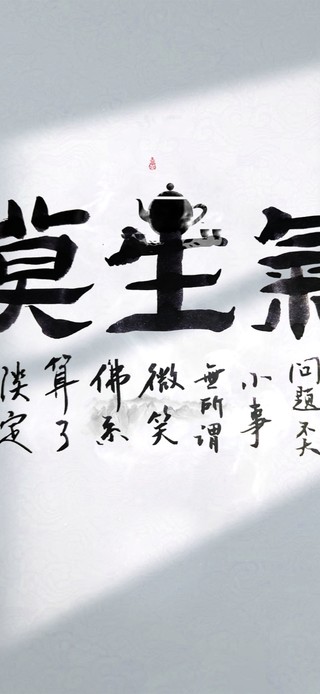 莫生氣
淡定
算了
佛系
微笑
無所謂
小事
問題不大